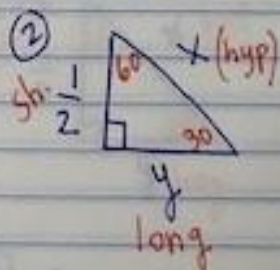 2
60
x (hyp)
sh. 1/2
30
y
long